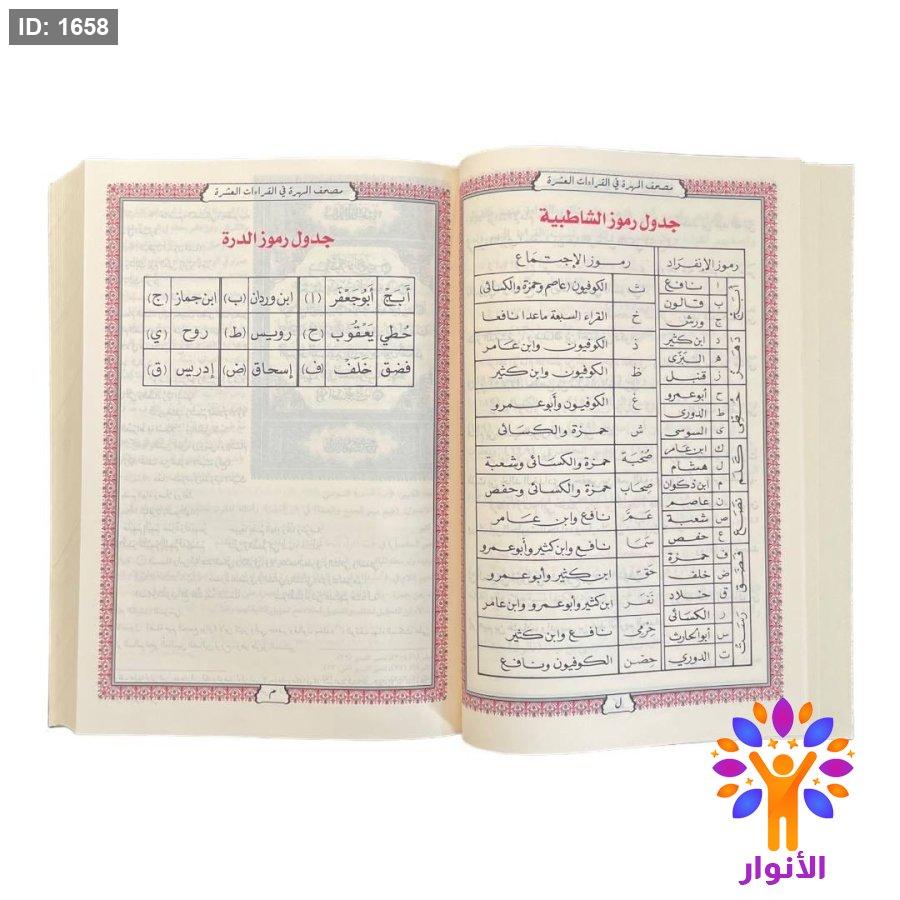 ID: 1658
مصحف المهرة في القراءات العشرة
جدول رموز الشاطبية
رموز الإنفراد رموز الإجتماع
أبج
ا نافع
ب قالون
ج ورش
دهز
د ابن كثير
ه البزى
ز قنبل
حطى
ح أبوعمرو
ط الدورى
ى السوسى
كلم
ك ابن عامر
ل هشام
م ابن ذكوان
نصع
ن عاصم
ص شعبة
ع حفص
فضق
ف حمزة
ض خلف
ق خلاد
رست
ر الكسائى
س أبوالحارث
ت الدوري
ث الكوفيون (عاصم وحمزة والكسائى)
خ القراء السبعة ماعدا نافعا
ذ الكوفيون وابن عامر
ظ الكوفيون وابن كثير
غ الكوفيون وأبوعمرو
ش حمزة والكسائى
صُحْبَة حمزة والكسائى وشعبة
صِحَاب حمزة والكسائى وحفص
عَمَّ نافع وابن عامر
سَمَا نافع وابن كثير وأبوعمرو
حَقّ ابن كثير وأبوعمرو
نَفَر ابن كثير وأبوعمرو وابن عامر
حِرْمى نافع وابن كثير
حِصْن الكوفيون ونافع
ل
مصحف المهرة في القراءات العشرة
جدول رموز الدرة
أَبَجْ أَبُوجَعْفَر (ا) ابن وردان (ب) ابن جماز (ج)
حُطِي يَعْقُوب (ح) رويس (ط) روح (ي)
فضق خَلَفْ (ف) إسحاق (ض) إدريس (ق)
م
الأنوار